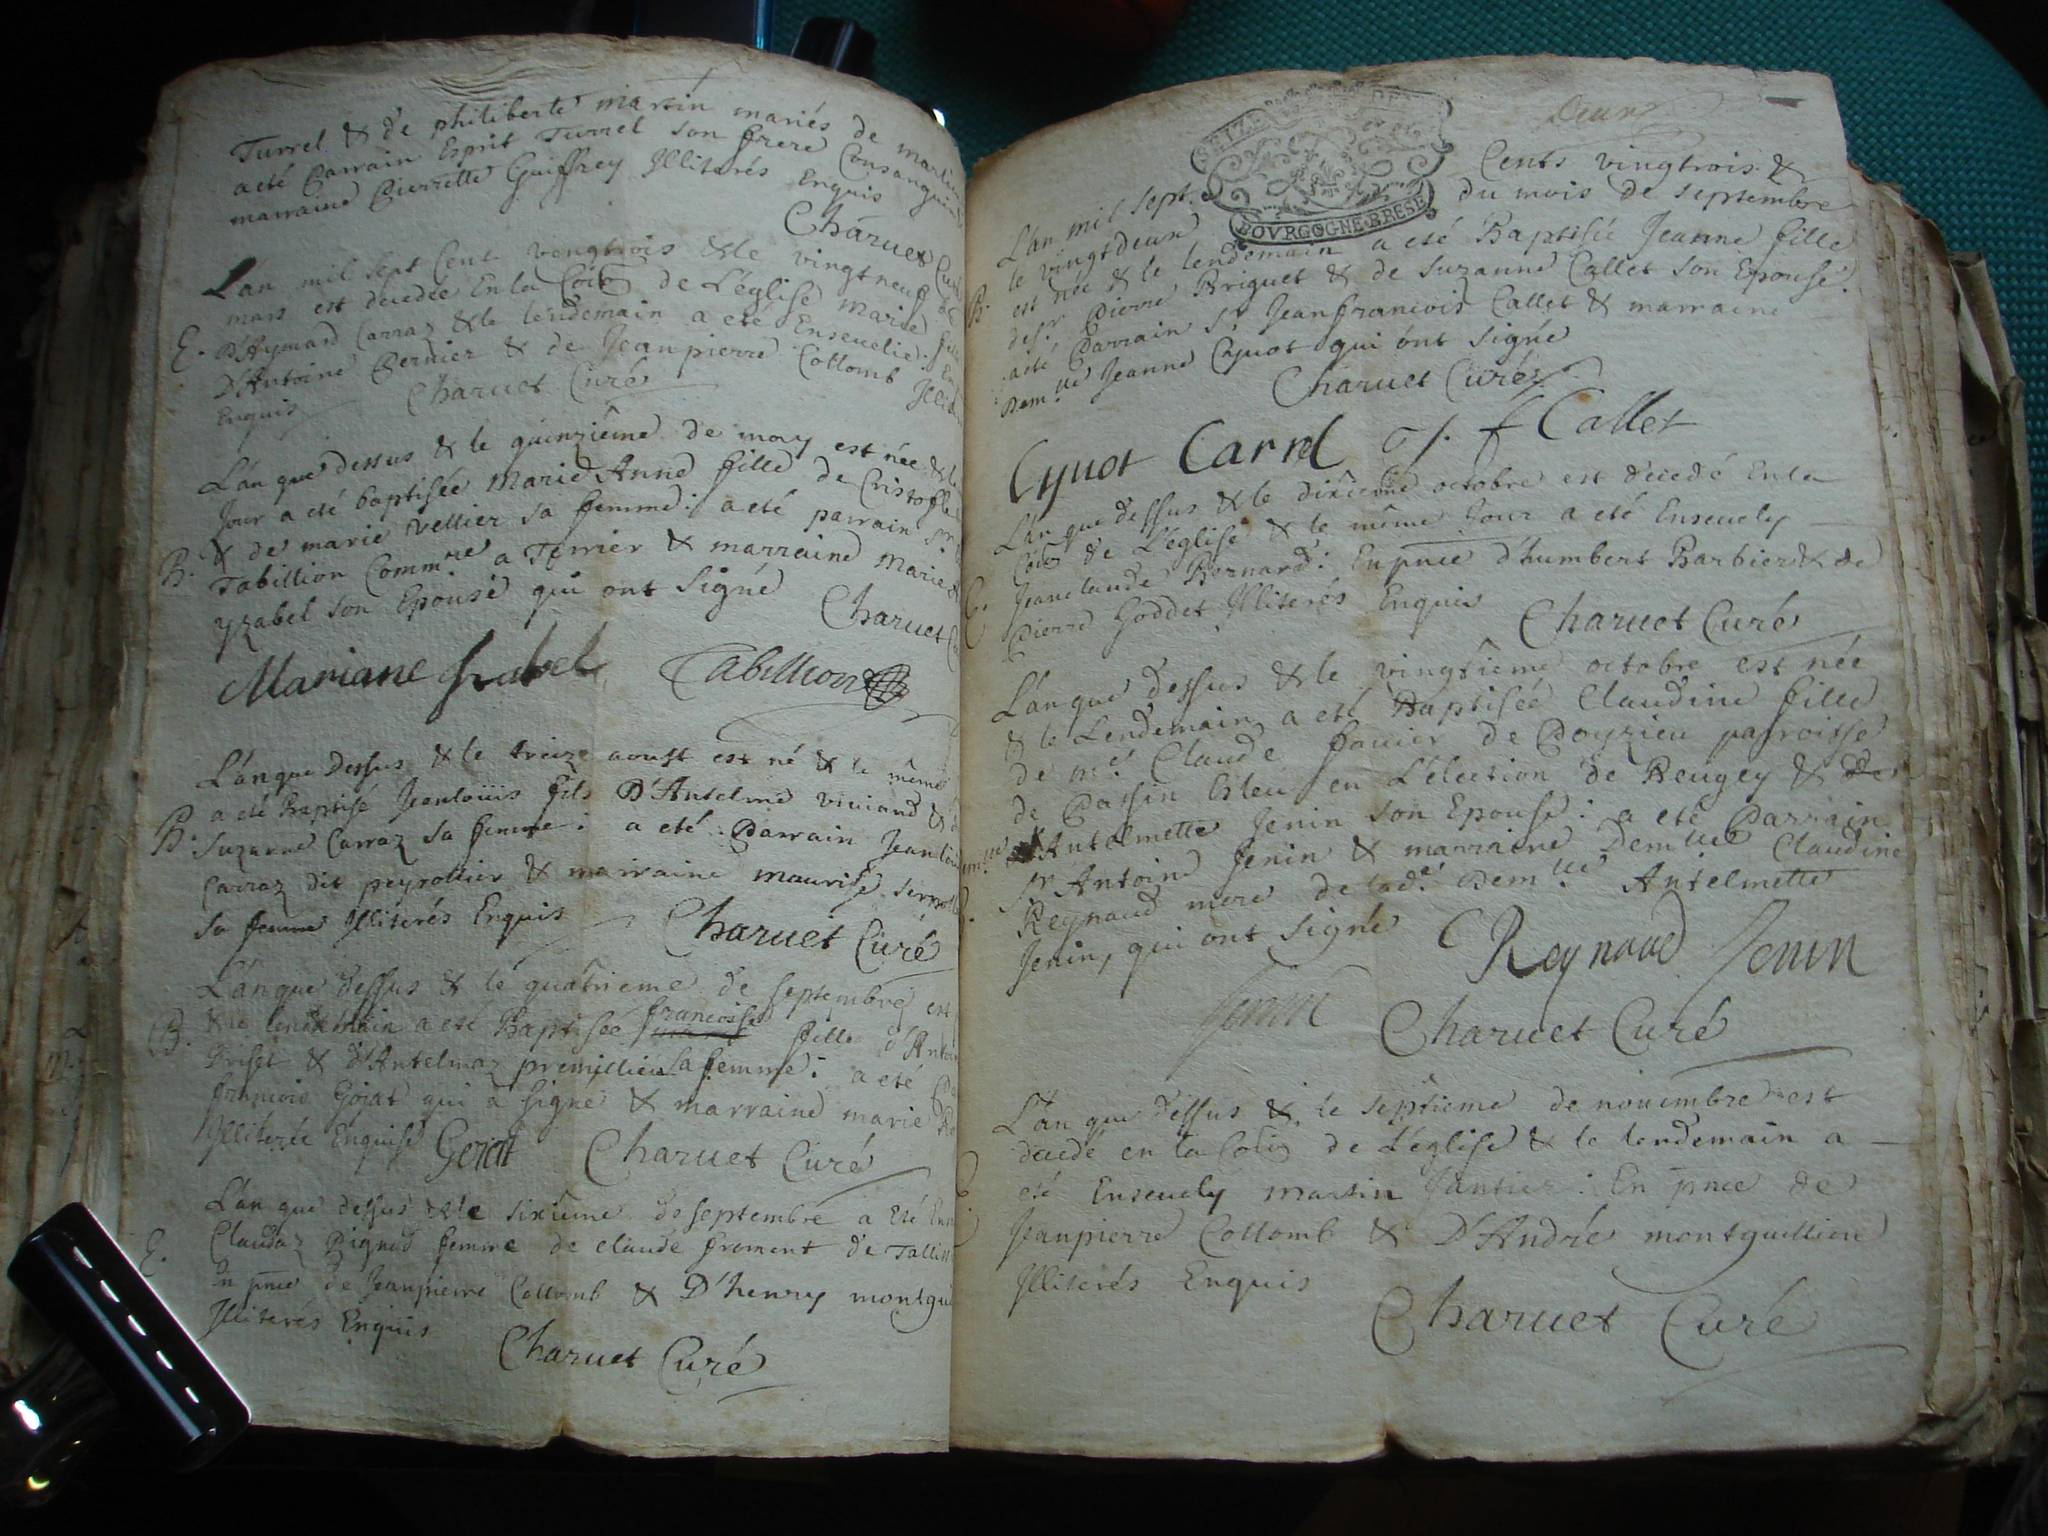 Turrel & de philiberte martin mariés de
a eté Parrain Esprit Turrel son frere Consanguin
marraine Pierrette Guiffrey Illiterés Enquis
Charuet
L'an mil sept Cent vengtrois & le vingtneuf de
mars est decedée En la Coīon de L'église Marie
E. D'Aymard Carraz & le lendemain a eté Enseuelie
D'Antoine Pernier & de Jeanpierre Collomb
Enquis Charuet Curé
L'an que dessus & le quinzième de may est née &
Jour a eté baptisée Marie Anne fille de Cristofle
B. & de marie Vellier sa femme: a eté parrain sr
Tabillion Commre a Terrier & marraine Marie
Yzabel son Epouse qui ont signé Charuet
Mariane Isabel Tabillion
L'an que dessus & le treize aoust est né & le même
B. a eté Baptisé Jeanloüis fils D'Antelme viuiand &
Suzanne Carraz sa femme: a eté Parrain
Carraz dit peyrollier & marraine maurise
sa femme Illiterés Enquis Charuet Curé
L'an que dessus & le quatrieme de septembre est
B. & le lendemain a eté Baptisée francoise fille
& d'Antelmaz premillieu sa femme: a eté
francois Gojat qui a signé & marraine marie
Illiterée Enquise Gojat Charuet Curé
L'an que dessus & le sixième de septembre a eté
E. Claudaz Pignod femme de claude froment de
En pnce de Jeanpierre Collomb & D'henry
Illiterés Enquis
Charuet Curé
Deux
SEIZE
BOVRGOGNE BRESE
L'an mil sept Cents vingtrois &
le vingtdeux du mois de septembre
B. est née & le lendemain a eté Baptisée Jeanne fille
de sr Pierre Briguet & de Suzanne Callet son Epouse:
a eté Parrain sr Jeanfrancois Callet & marraine
Demlle Jeanne Cyuot qui ont signé
Charuet Curé
Cyuot Carrel J. f Callet
L'an que dessus & le dixième octobre est decedé En la
Coīon de L'église & le même Jour a eté Enseuely
E. Jeanclaude Bernard: En pnce d'humbert Barbier & de
Pierre Goddet Illiterés Enquis
Charuet Curé
L'an que dessus & le vingtième octobre est née
& le Lendemain a eté Baptisée Claudine fille
de me Claude fauier de Poyzieu parroisse
de Parsin Isleu en L'élection de Beugey & de
Antelmette Jenin son Epouse: a eté Parrain
sr Antoine Jenin & marraine Demlle Claudine
Reynaud mere de lade Demlle Antelmette
Jenin, qui ont signé C Reynaud Jenin
Jenin Charuet Curé
L'an que dessus & le septième de nouembre est
decedé en la Coīon de L'église & le lendemain a
eté Enseuely martin Jantier: En pnce de
Jeanpierre Collomb & D'André montguillion
Illiterés Enquis
Charuet Curé